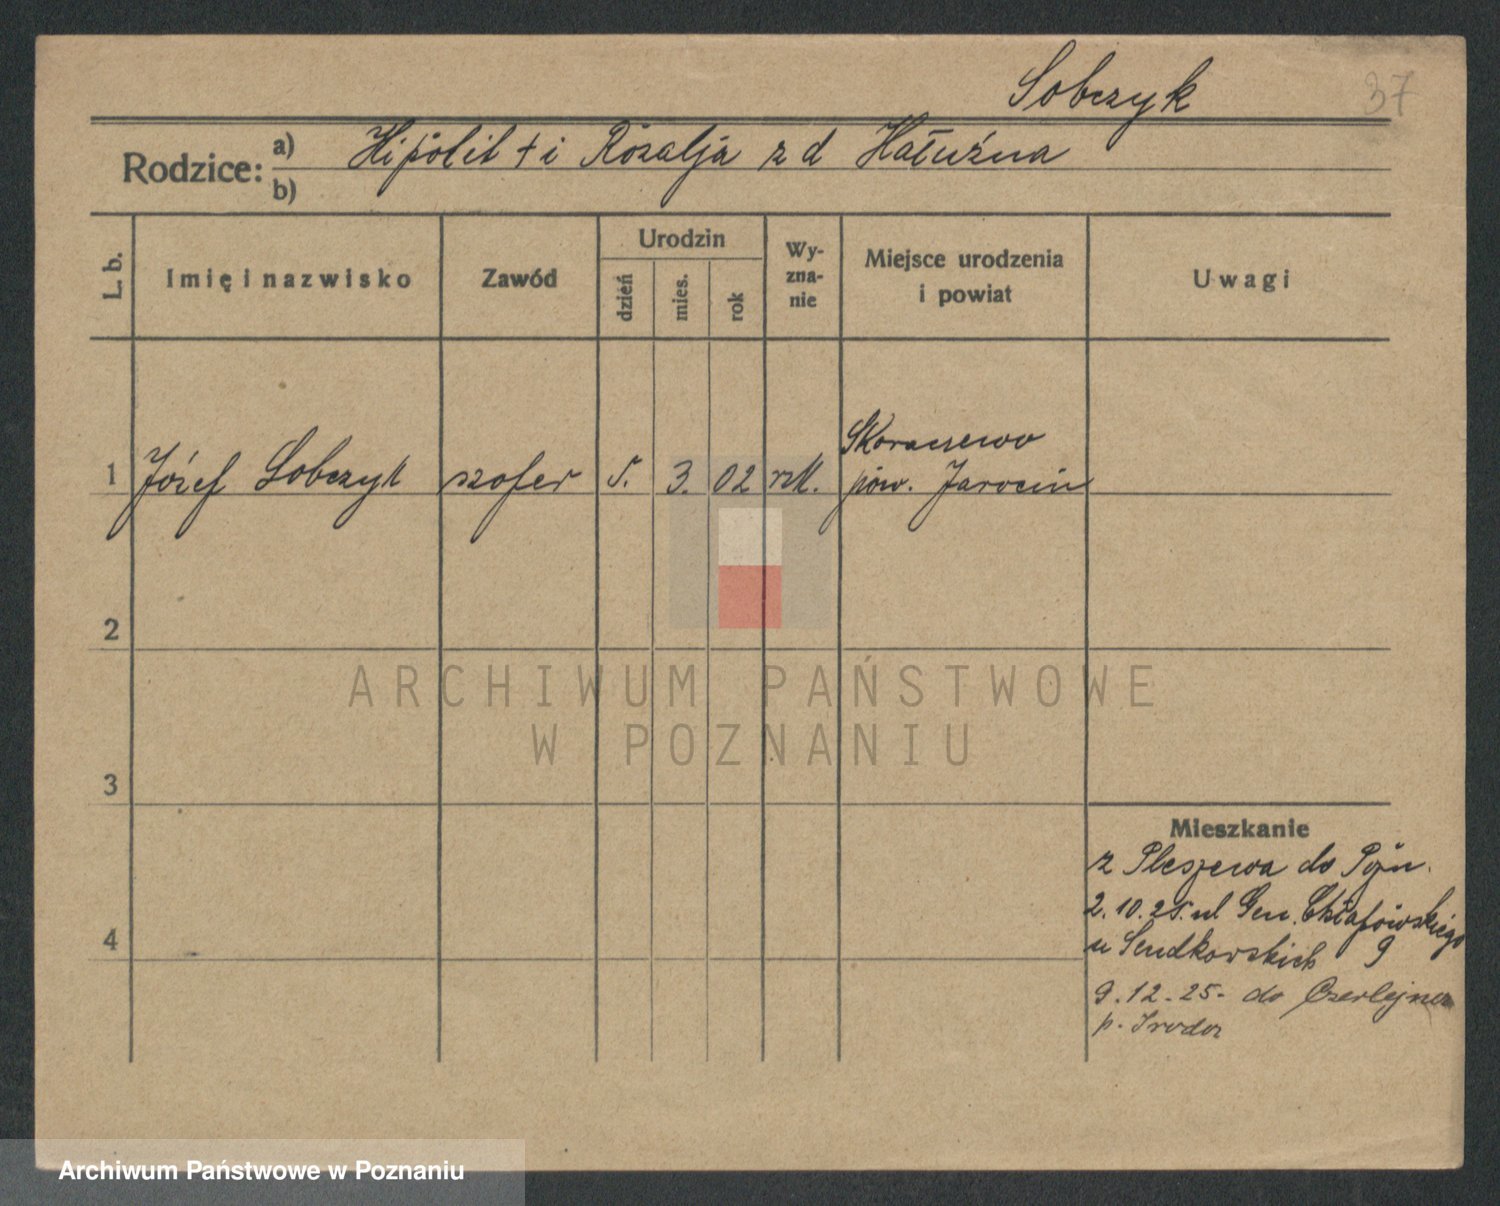 Sobczyk
37
Rodzice: a) Hipolit + i Rozalja z d Hałuźna
b)
L. b.
Imię i nazwisko
Zawód
Urodzin
dzień
mies.
rok
Wy-
zna-
nie
Miejsce urodzenia
i powiat
Uwagi
1 Józef Sobczyk szofer 5. 3. 02 rzk. Skoraczewo
pow. Jarocin
2
3
4
Mieszkanie
z Pleszewa do Pozn.
2.10.25. ul Gen. Chłapowskiego
u Sendkowskich 9
9.12.25- do Czerlejna
p. Środa
ARCHIWUM PAŃSTWOWE
W POZNANIU
Archiwum Państwowe w Poznaniu